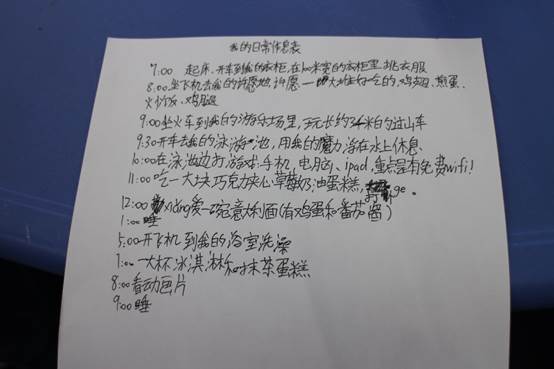 我的日常休息表
7:00 起床、开车到我的衣柜,在100米宽的衣柜里挑衣服
8:00坐飞机去我的许愿地,许愿一大堆好吃的,鸡翅、煎蛋、
火少饭、鸡腿
9:00坐火车到我的游乐场里,玩长约3千米的过山车
9:30开车去我的泳游池,用我的魔力浮在水上休息、
10:00在泳池边打游戏,手机,电脑,ipad,重点是有免费wifi!
11:00吃一大块巧克力夹心草莓奶油蛋糕,打ge。
12:00 xiang受一碗意大利面(有鸡蛋和番茄酱)
1:00睡
5:00开飞机到我的浴室洗澡
7:00一大杯冰淇淋和抹茶蛋糕
8:00看动画片
9:00睡